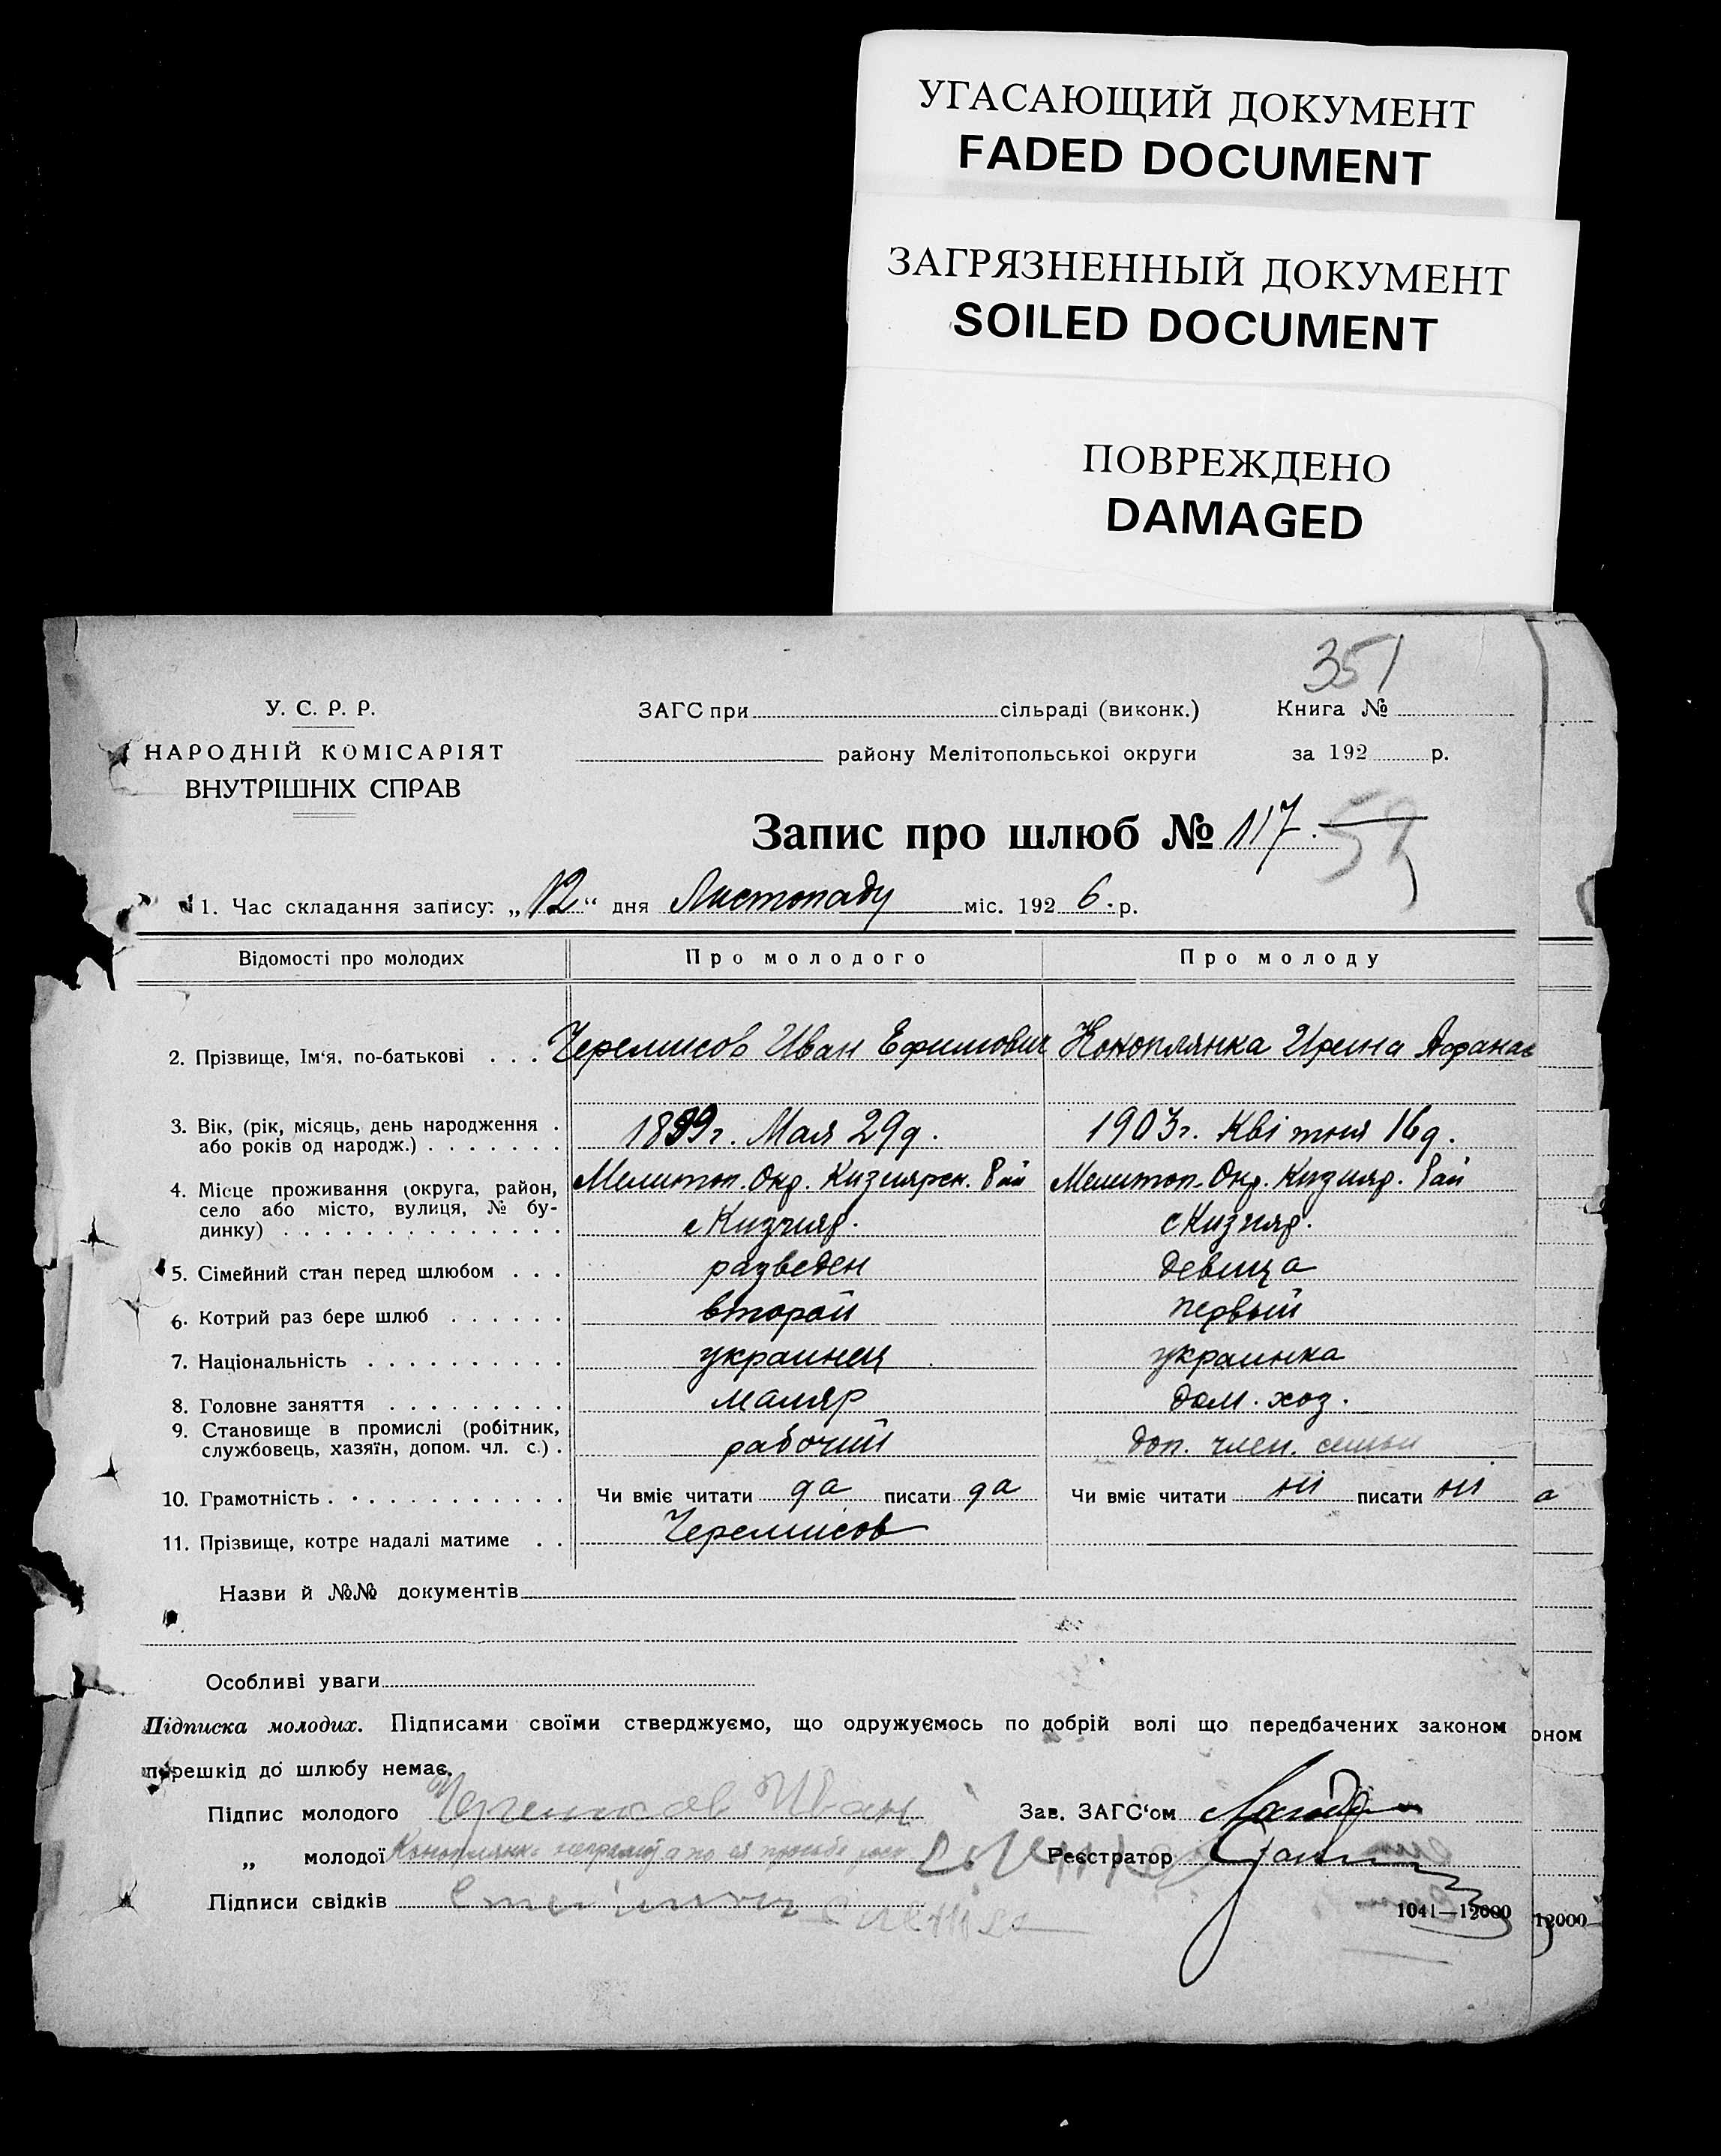 УГАСАЮЩИЙ ДОКУМЕНТ
FADED DOCUMENT
ЗАГРЯЗНЕННЫЙ ДОКУМЕНТ
SOILED DOCUMENT
ПОВРЕЖДЕНО
DAMAGED
351
У. С. Р. Р.
НАРОДНІЙ КОМІСАРІЯТ
ВНУТРІШНІХ СПРАВ
ЗАГС при сільраді (виконк.)
району Мелітопольської округи
Книга №
за 192 р.
Запис про шлюб № 117. 59
1. Час складання запису: „12“ дня Листопаду міс. 1926. р.
Відомості про молодих Про молодого Про молоду
2. Прізвище, Ім'я, по-батькові . . . Черемисов Иван Ефимович Коноплянка Ирина Афанас
3. Вік, (рік, місяць, день народження .
або років од народж.) . . . . . . . 1899г. Мая 29д. 1903г. Квітня 16д.
4. Місце проживання (округа, район, Мелитоп. Окр. Кизиярск. Рай Мелитоп. Окр. Кизияр. Рай
село або місто, вулиця, № бу-
динку) . . . . . . . . . . . . . . с Кизияр. с Кизияр.
5. Сімейний стан перед шлюбом . . . разведен девица
6. Котрий раз бере шлюб . . . . . . второй первый
7. Національність . . . . . . . . . . украинец украинка
8. Головне заняття . . . . . . . . . маляр дом. хоз.
9. Становище в промислі (робітник,
службовець, хазяїн, допом. чл. с.) . рабочий доп. член. семьи
10. Грамотність . . . . . . . . . . . . Чи вміє читати да писати да Чи вміє читати ні писати ні а
11. Прізвище, котре надалі матиме . . Черемисов
Назви й №№ документів
Особливі уваги
Підписка молодих. Підписами своїми стверджуємо, що одружуємось по добрій волі що передбачених законом оном
перешкід до шлюбу немає.
Підпис молодого Иван Зав. ЗАГС'ом
„ молодої Коноплянка Реєстратор
Підписи свідків
1041—12000 12000